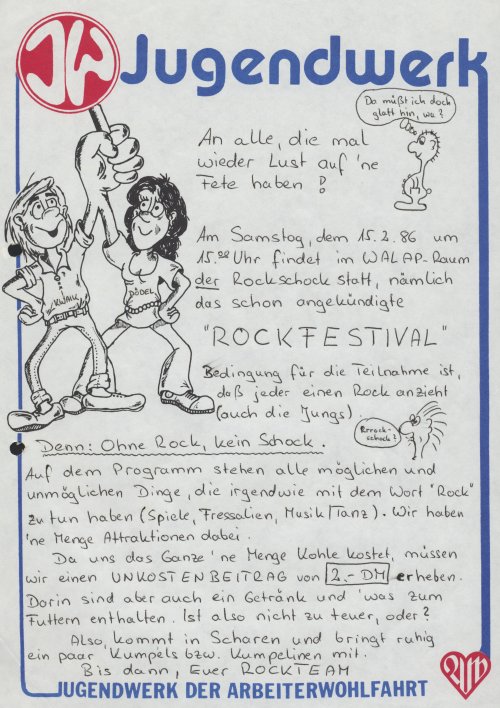 JW Jugendwerk
Da müßt ich doch
glatt hin, wa?
An alle, die mal
wieder Lust auf 'ne
Fete haben!
Am Samstag, dem 15.2.86 um
15.00 Uhr findet im WALAP-Raum
der Rockschock statt, nämlich
das schon angekündigte
"ROCKFESTIVAL"
KWAUK
DÖDEL
Bedingung für die Teilnahme ist,
daß jeder einen Rock anzieht
(auch die Jungs).
Rrrock-
schock?
Denn: Ohne Rock, kein Schock.
Auf dem Programm stehen alle möglichen und
unmöglichen Dinge, die irgendwie mit dem Wort "Rock"
zu tun haben (Spiele, Fressalien, Musik/Tanz). Wir haben
'ne Menge Attraktionen dabei.
Da uns das Ganze 'ne Menge Kohle kostet, müssen
wir einen UNKOSTENBEITRAG von 2.- DM erheben.
Darin sind aber auch ein Getränk und 'was zum
Futtern enthalten. Ist also nicht zu teuer, oder?
Also, kommt in Scharen und bringt ruhig
ein paar Kumpels bzw. Kumpelinen mit.
Bis dann, Euer ROCKTEAM
JUGENDWERK DER ARBEITERWOHLFAHRT
AW